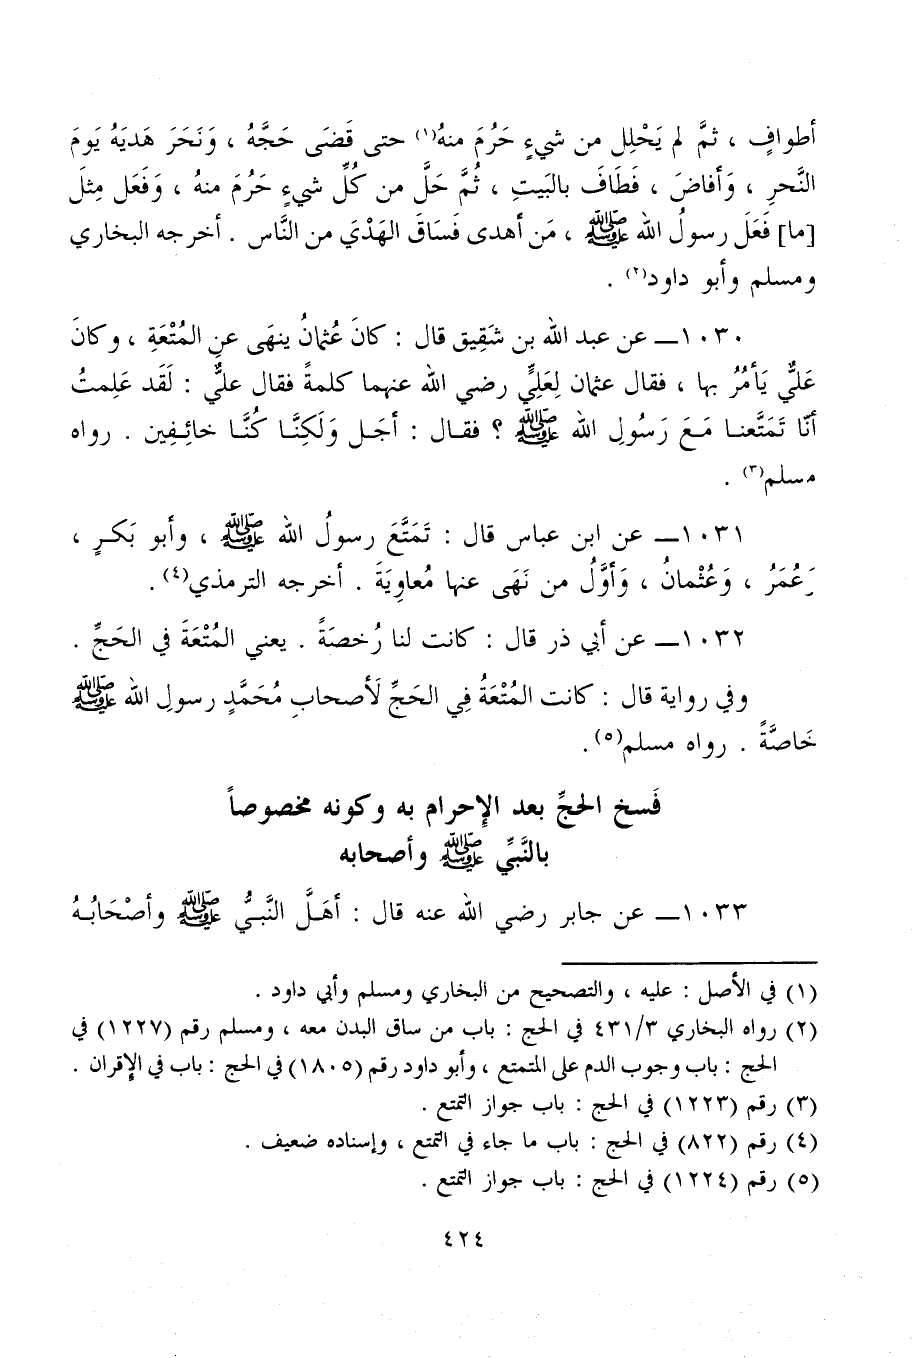 أطوافٍ ، ثمَّ لم يَحْلِل من شيءٍ حَرُمَ منهُ(١) حتى قَضَى حَجَّهُ ، وَنَحَرَ هَديَهُ يَومَ
النَّحرِ ، وَأفاضَ ، فَطَافَ بالبَيتِ ، ثُمَّ حَلَّ من كُلِّ شيءٍ حَرُمَ منهُ ، وَفَعَل مِثلَ
[ما] فَعَلَ رسولُ الله ﷺ ، مَن أهدى فَسَاقَ الهَدْيَ من النَّاس . أخرجه البخاري
ومسلم وأبو داود(٢) .
١٠٣٠ـ عن عبد الله بن شَقِيق قال : كانَ عُثمانُ ينهَى عنِ المُتْعَةِ ، وكانَ
عَليٌّ يَأمُرُ بها ، فقال عثمان لِعَليٍّ رضي الله عنهما كلمةً فقال عليٌّ : لَقَد عَلِمتُ
أنّا تَمَتَّعنـا مَـعَ رَسُولِ الله ﷺ ؟ فقـال : أجَـل وَلَكِنَّـا كُنَّـا خائِـفِين . رواه
مسلم(٣) .
١٠٣١ـ عن ابن عباس قال : تَمَتَّعَ رسولُ الله ﷺ ، وأبو بَكـرٍ ،
وَعُمَرُ ، وَعُثْمانُ ، وَأوَّلُ من نَهَى عنها مُعاوِيَةَ . أخرجه الترمذي(٤) .
١٠٣٢ـ عن أبي ذر قال : كانت لنا رُخصَةً . يعني المُتْعَةَ في الحَجِّ .
وفي رواية قال : كانت المُتْعَةُ فِي الحَجِّ لَأصحابِ مُحَمَّدٍ رسولِ الله ﷺ
خَاصَّةً . رواه مسلم(٥) .
فَسخ الحجِّ بعد الإحرام به وكونه مخصوصاً
بالنَّبِّي ﷺ وأصحابه
١٠٣٣ـ عن جابر رضي الله عنه قال : أهَـلَّ النَّبـيُّ ﷺ وأصْحَابُـهُ
(١) في الأصل : عليه ، والتصحيح من البخاري ومسلم وأبي داود .
(٢) رواه البخاري ٤٣١/٣ في الحج : باب من ساق البدن معه ، ومسلم رقم (١٢٢٧) في
الحج : باب وجوب الدم على المتمتع ، وأبو داود رقم (١٨٠٥) في الحج : باب في الإقران .
(٣) رقم (١٢٢٣) في الحج : باب جواز التمتع .
(٤) رقم (٨٢٢) في الحج : باب ما جاء في التمتع ، وإسناده ضعيف .
(٥) رقم (١٢٢٤) في الحج : باب جواز التمتع .
٤٢٤